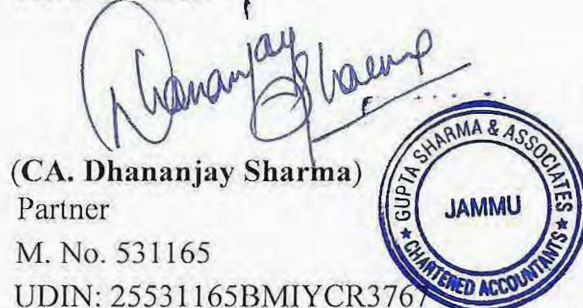 Dhananjay Sharma
(CA. Dhananjay Sharma)
Partner
M. No. 531165
UDIN: 25531165BMIYCR3767
GUPTA SHARMA & ASSOCIATES
JAMMU
★ CHARTERED ACCOUNTANTS ★